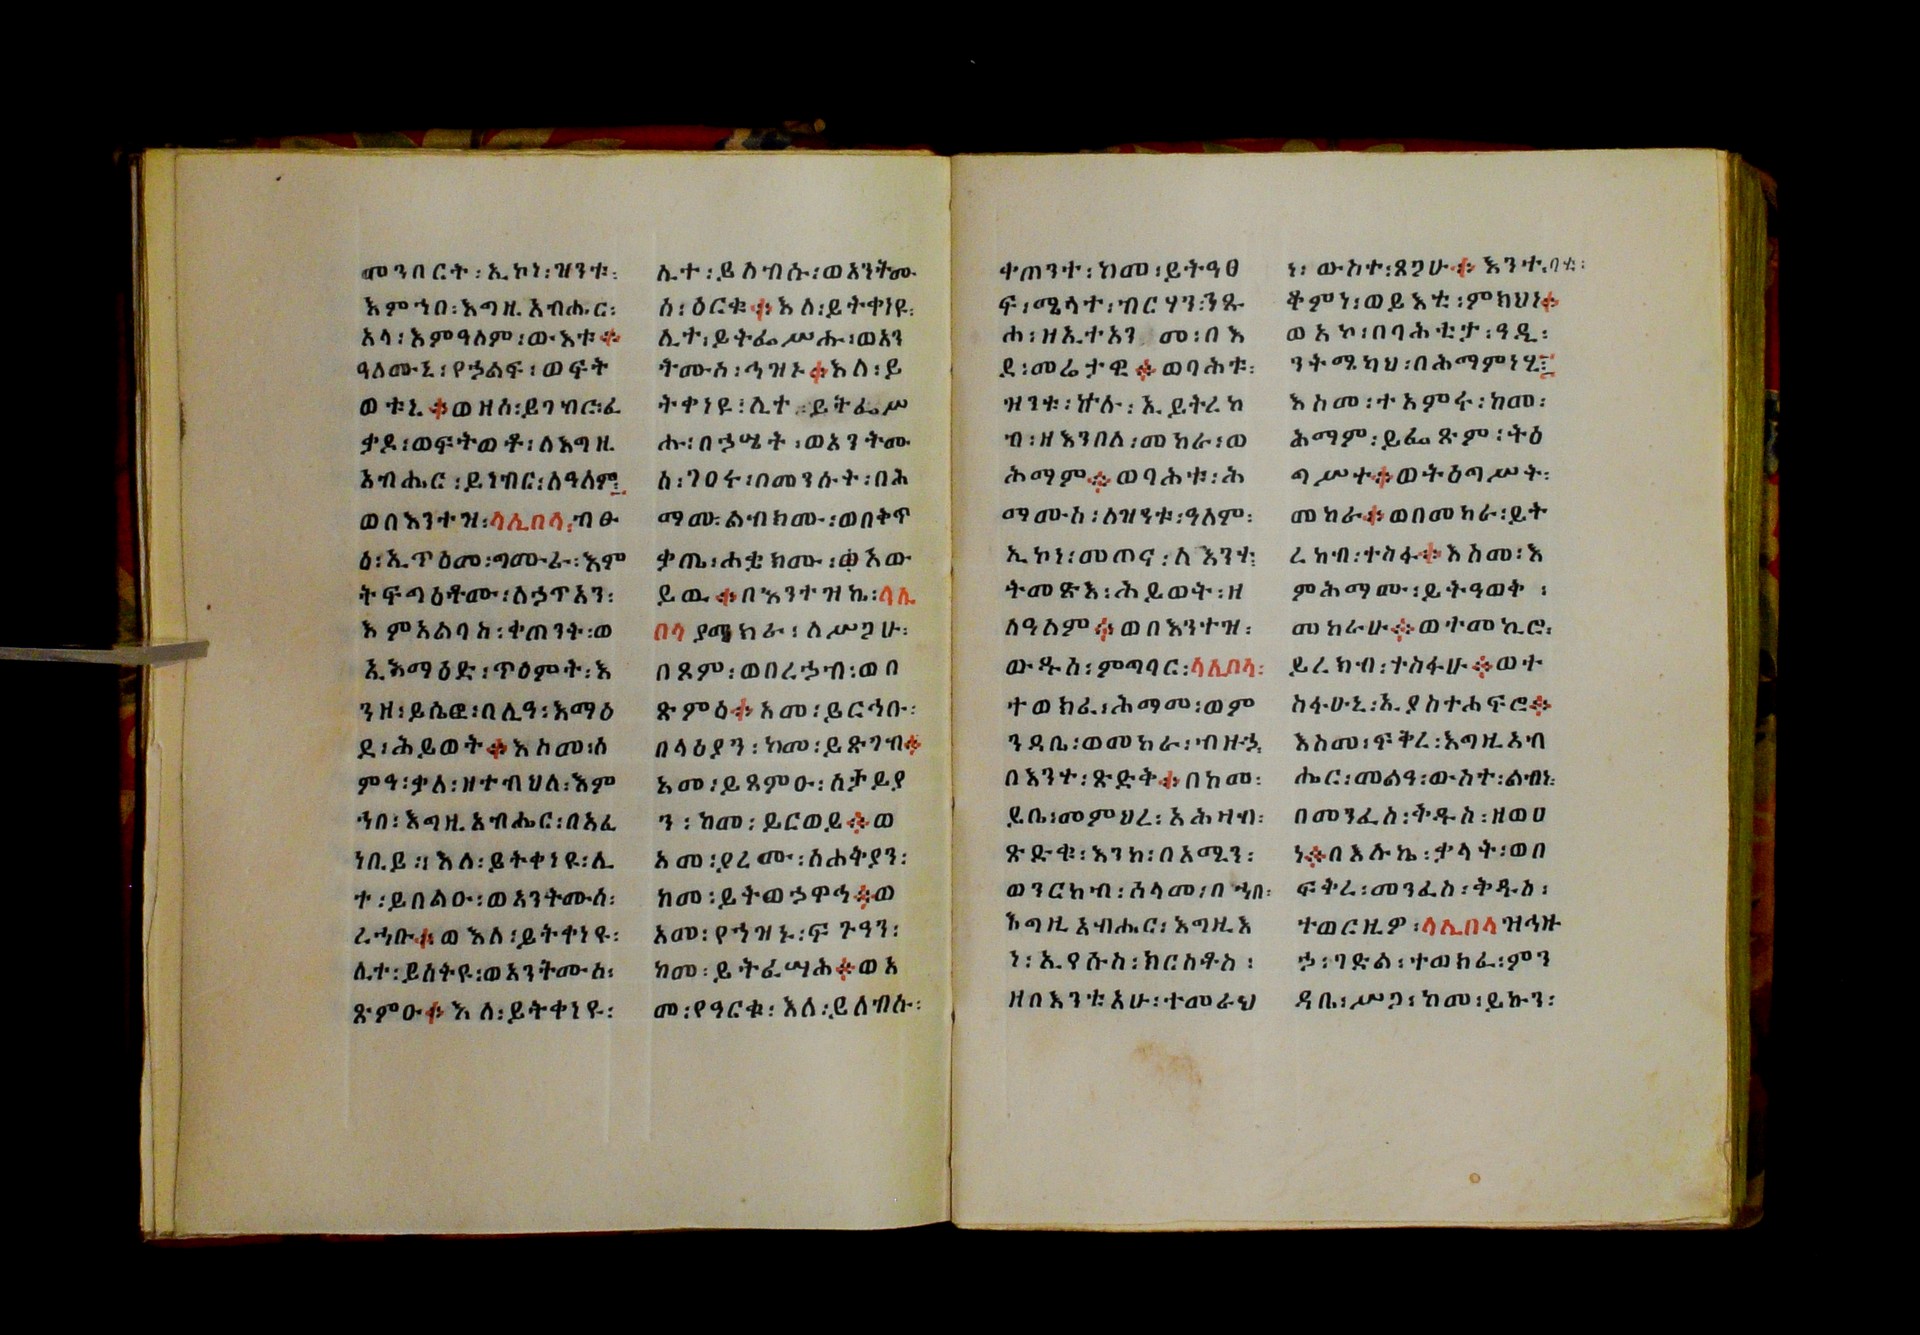 መንበርት፡ኢኮነ፡ዝንቱ፡
እምኀበ፡እግዚአብሔር፡
አላ፡እምዓለም፡ውእቱ።
ዓለሙኒ፡የኃልፍ፡ወፍት
ወቱኒ።ወዘሰ፡ይገብር፡ፈ
ቃዶ፡ወፍትወቶ፡ለእግዚ
አብሔር፡ይነብር፡ለዓለም።
ወበእንተዝ፡ላሊበላ፡ብፁ
ዕ፡ኢጥዕመ፡ግሙራ፡እም
ትፍግዕቶሙ፡ለኃጥአን፡
እምአልባሰ፡ቀጠንት፡ወ
ኢኣማዕድ፡ጥዕምት፡እ
ንዘ፡ይሴፎ፡በሊዓ፡እማዕ
ደ፡ሕይወት።እስመ፡ሰ
ምዓ፡ቃለ፡ዘተብህለ፡እም
ኀበ፡እግዚአብሔር፡በአፈ
ነቢይ፡እለ፡ይትቀነዩ፡ሊ
ተ፡ይበልዑ፡ወአንትሙሰ፡
ረኀቡ።ወእለ፡ይትቀነዩ፡
ሊተ፡ይስትዩ፡ወአንትሙሰ፡
ጽምዑ።እለ፡ይትቀነዩ፡
ሊተ፡ይለብሱ፡ወአንትሙ
ሰ፡ዕርቁ።እለ፡ይትቀነዩ፡
ሊተ፡ይትፌሥሑ፡ወአን
ትሙሰ፡ኅዝኑ።እለ፡ይ
ትቀነዩ፡ሊተ፡ይትፌሥ
ሑ፡በኃሤት፡ወአንትሙ
ሰ፡ገዐሩ፡በመንሱት፡በሕ
ማሙ፡ልብክሙ፡ወበቅጥ
ቃጤ፡ሐቌክሙ፡ወአው
ይዉ።በእንተዝኬ፡ላሊ
በላ ያሜክራ፡ለሥጋሁ፡
በጾም፡ወበረኃብ፡ወበ
ጽምዕ።አመ፡ይርኅቡ፡
በላዕያን፡ከመ፡ይጽገብ።
አመ፡ይጸምዑ፡ሰታይያ
ን፡ከመ፡ይርወይ።ወ
አመ፡ያረሙ፡ስሐትያን፡
ከመ፡ይትወኃዋኅ።ወ
አመ፡የኀዝኑ፡ፍጉዓን፡
ከመ፡ይትፈሣሕ።ወአ
መ፡የዓርቁ፡እለ፡ይለብሱ፡
ቀጠንተ፡ከመ፡ይትዓፀ
ፍ፡ሜላተ፡ብርሃን፡ንጹ
ሕ፡ዘኢተአን መ፡በእ
ደ፡መሬታዊ።ወባሕቱ፡
ዝንቱ፡ኵሉ፡ኢይትረከ
ብ፡ዘእንበለ፡መከራ፡ወ
ሕማም።ወባሕቱ፡ሕ
ማሙሰ፡ለዝንቱ፡ዓለም፡
ኢኮነ፡መጠና፡ለእንተ፡
ትመጽእ፡ሕይወት፡ዘ
ለዓለም።ወበእንተዝ፡
ውዱስ፡ምግባር፡ላሊበላ፡
ተወክፈ፡ሕማመ፡ወም
ንዳቤ፡ወመከራ፡ብዙኃ
በእንተ፡ጽድቅ።በከመ፡
ይቤ፡መምህረ፡አሕዛብ፡
ጽድቁ፡እንከ፡በአሚን፡
ወንርከብ፡ሰላመ፡በኀበ፡
እግዚአብሔር፡እግዚእ
ነ፡ኢየሱስ፡ክርስቶስ፡
ዘበእንቲአሁ፡ተመራህ
ነ፡ውስተ፡ጸጋሁ።እንተባቲ፡
ቆምነ፡ወይእቲ፡ምክህነ።
ወአኮ፡በባሕቲታ፡ዓዲ፡
ንትሜካህ፡በሕማምነሂ።
እስመ፡ተአምሩ፡ከመ፡
ሕማም፡ይፌጽም፡ትዕ
ግሥተ።ወትዕግሥት፡
መከራ።ወበመከራ፡ይት
ረከብ፡ተስፋ።እስመ፡እ
ምሕማሙ፡ይትዓወቅ፡
መከራሁ።ወተመኪሮ፡
ይረክብ፡ተስፋሁ።ወተ
ስፋሁኒ፡ኢያስተሐፍሮ።
እስመ፡ፍቅረ፡እግዚአብ
ሔር፡መልዓ፡ውስተ፡ልብነ
በመንፈስ፡ቅዱስ፡ዘወሀ
ነ።በእሉኬ፡ቃላት፡ወበ
ፍቅረ፡መንፈስ፡ቅዱስ፡
ተወርዚዎ፡ላሊበላ ዝኅዙ
ኃ፡ገድል፡ተወክፈ፡ምን
ዳቤ፡ሥጋ፡ከመ፡ይኩን፡